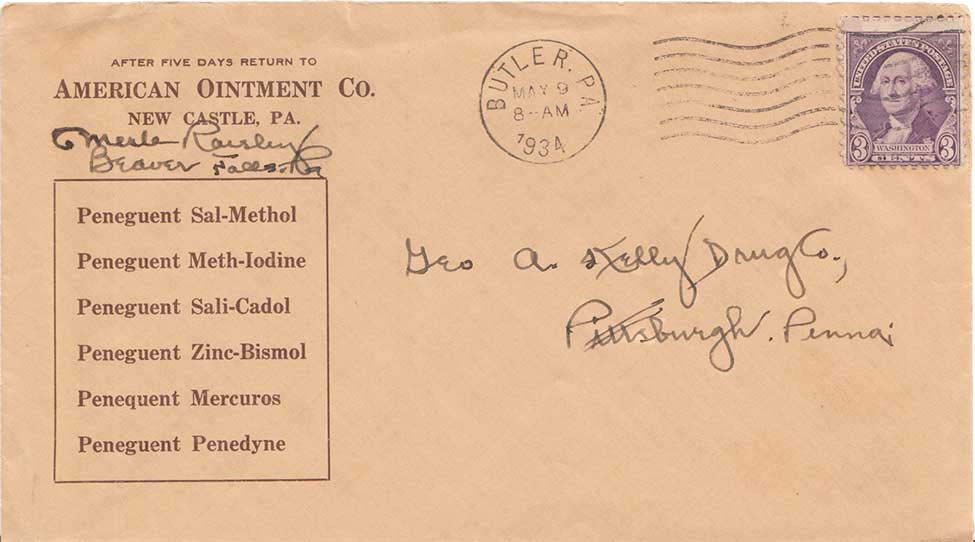 AFTER FIVE DAYS RETURN TO
AMERICAN OINTMENT CO.
NEW CASTLE, PA.
Merle
Beaver Falls Pa
Peneguent Sal-Methol
Peneguent Meth-Iodine
Peneguent Sali-Cadol
Peneguent Zinc-Bismol
Penequent Mercuros
Peneguent Penedyne
BUTLER. PA
MAY 9
8-AM
1934
UNITED STATES POSTAGE
3 WASHINGTON 3
CENTS
Geo A. Kelly Drug Co.,
Pittsburgh. Penna.